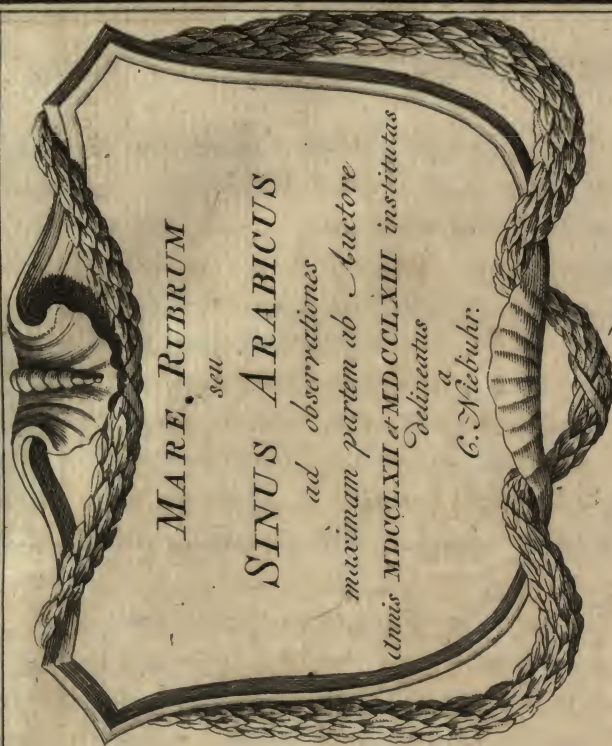 MARE RUBRUM
seu
SINUS ARABICUS
ad observationes
maximam partem ab Auctore
Annis MDCCLXII et MDCCLXIII institutas
delineatus
a
C. Niebuhr.